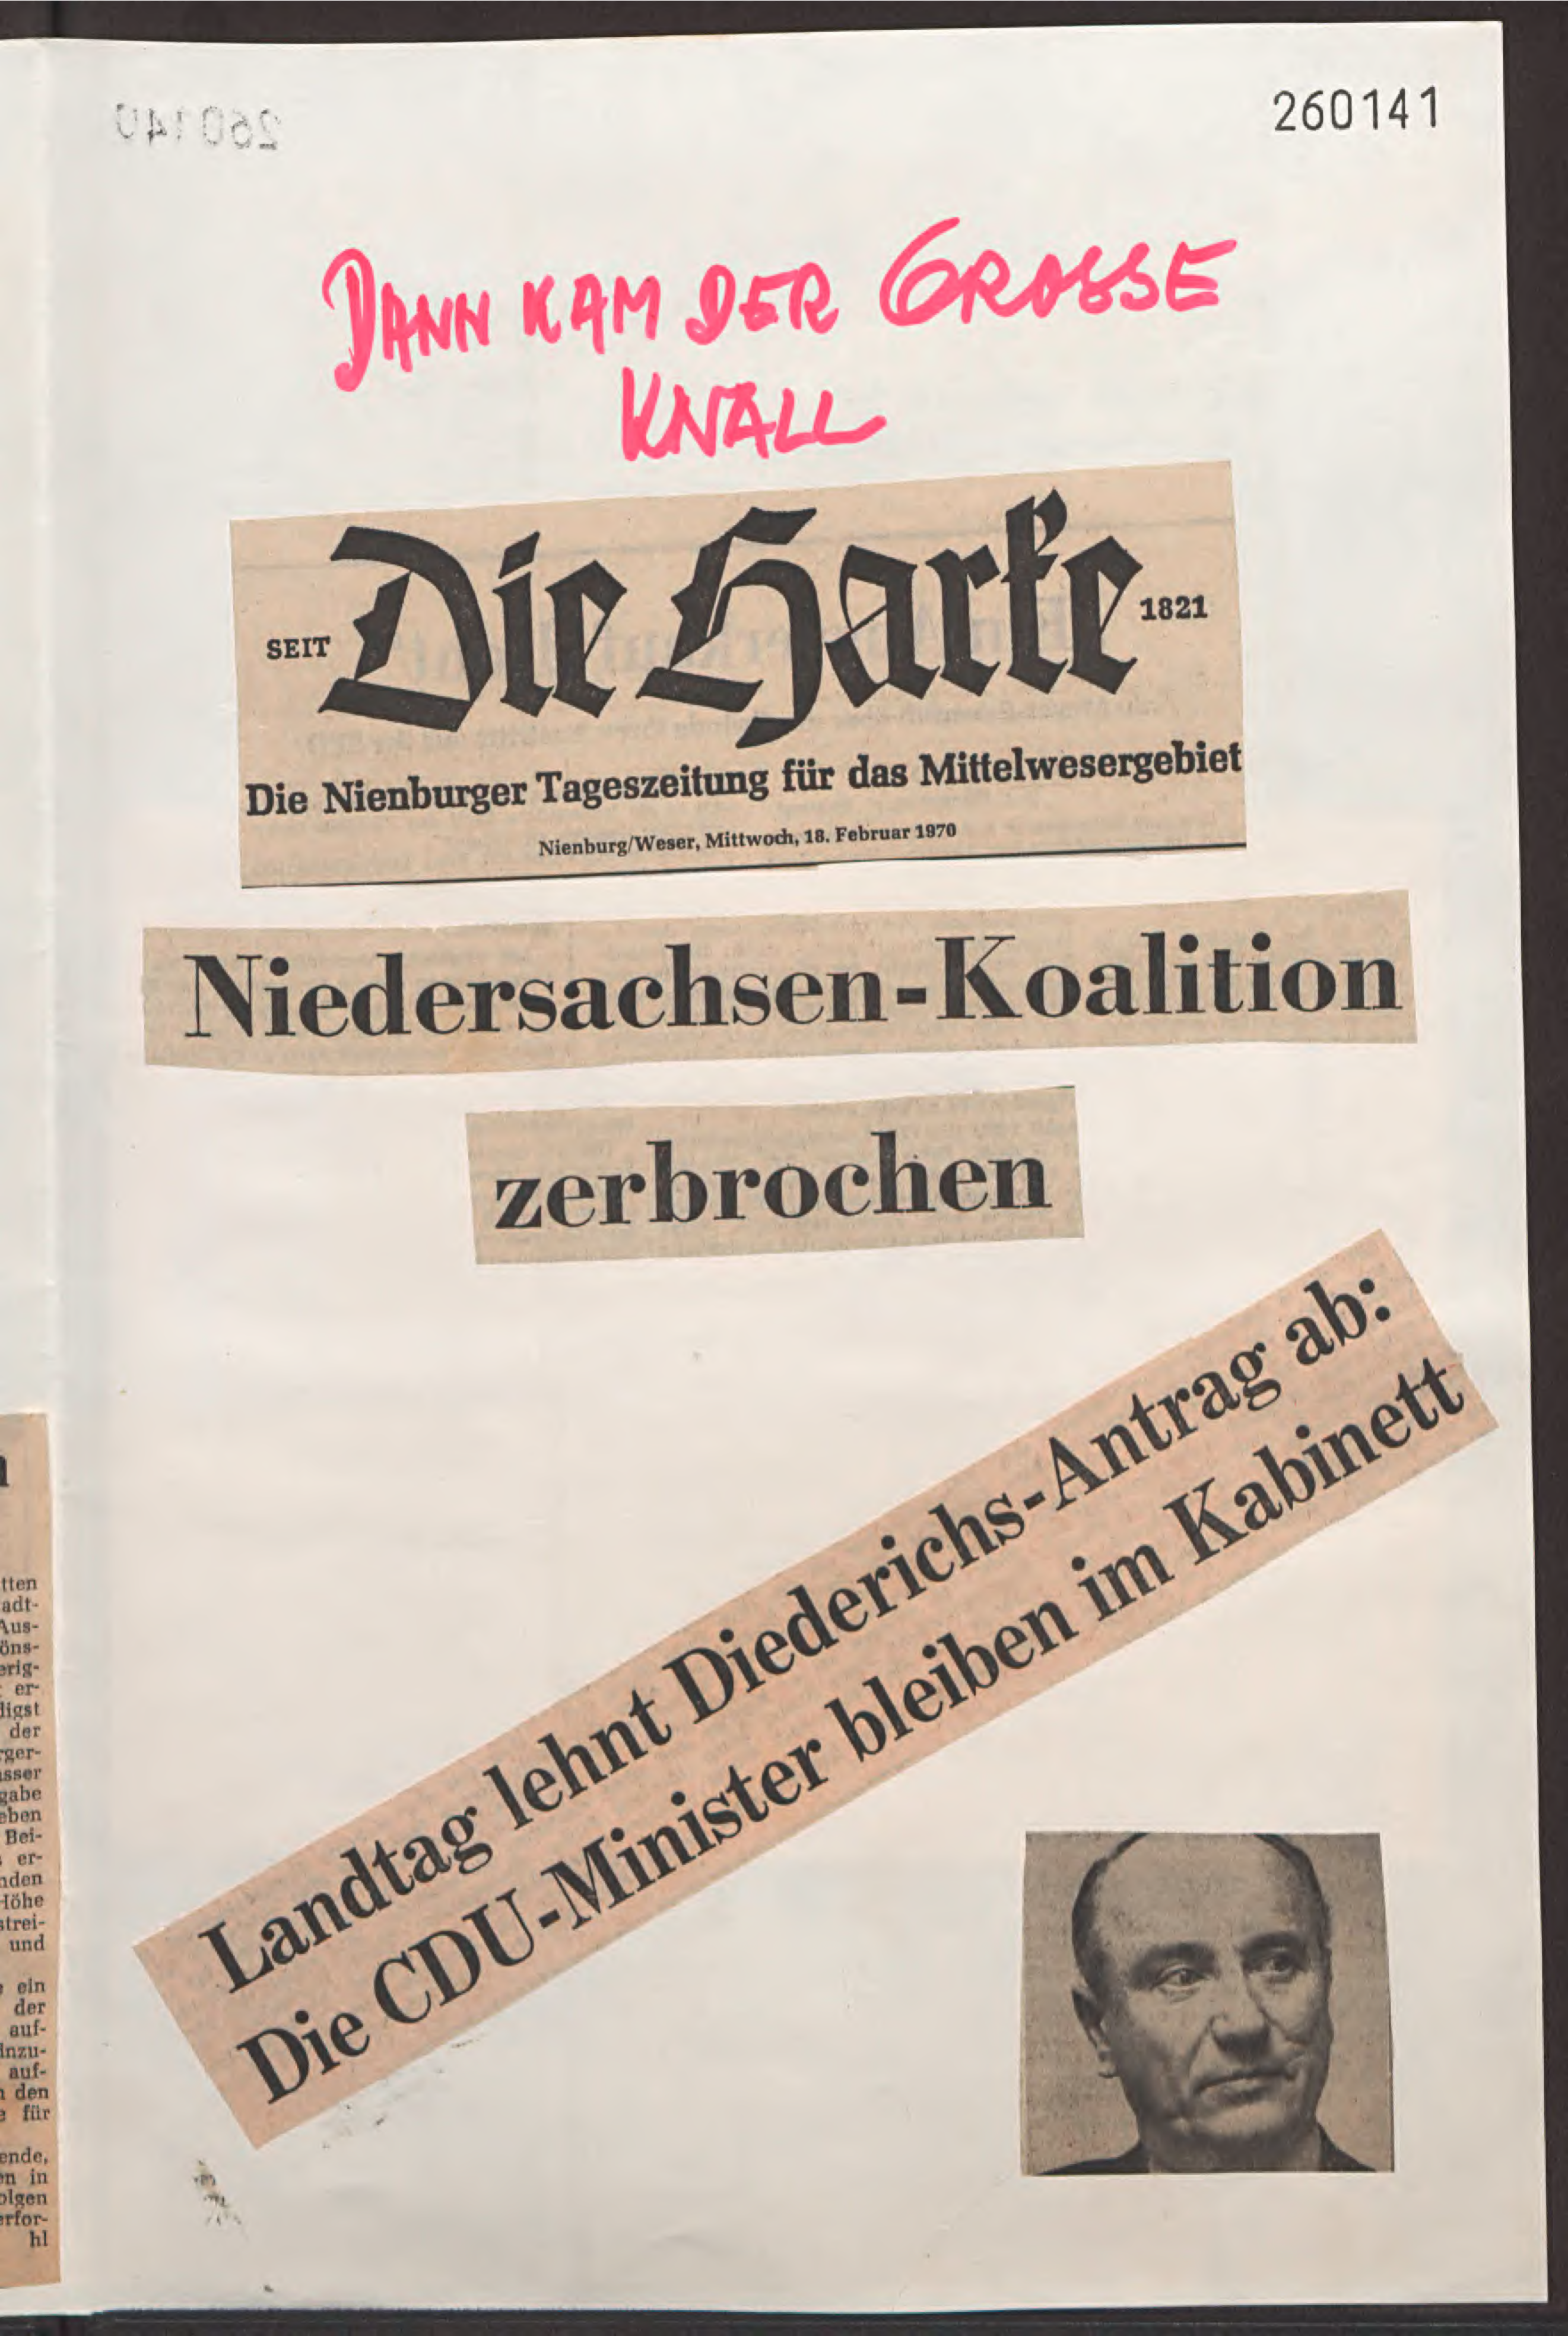 260141
DANN KAM DER GROSSE
KNALL
SEIT Die Harke 1821
Die Nienburger Tageszeitung für das Mittelwesergebiet
Nienburg/Weser, Mittwoch, 18. Februar 1970
Niedersachsen-Koalition
zerbrochen
Landtag lehnt Diederichs-Antrag ab:
Die CDU-Minister bleiben im Kabinett
tten
adt-
Aus-
öns-
erig-
er-
digst
der
rger-
asser
gabe
eben
Bei-
er-
nden
Höhe
strei-
und
ein
der
auf-
inzu-
auf-
den
für
ende,
en in
olgen
erfor-
hl